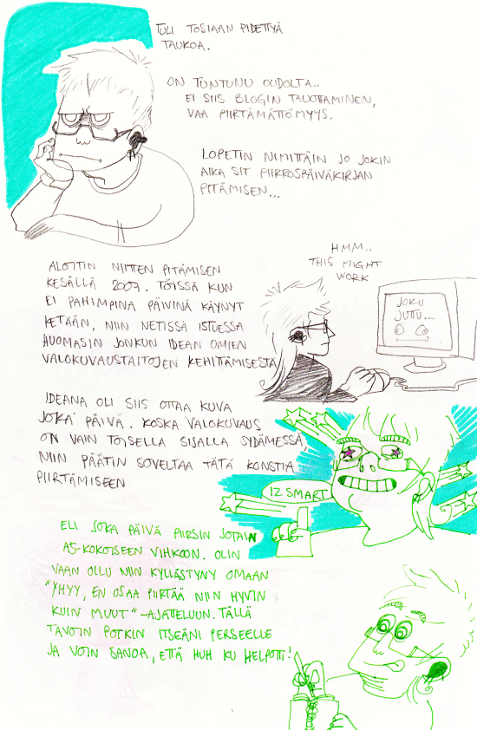 TULI TOSIAAN PIDETTYÄ
TAUKOA.
ON TUNTUNU OUDOLTA..
EI SIIS BLOGIN TAUOTTAMINEN,
VAA PIIRTÄMÄTTÖMYYS.
LOPETIN NIMITTÄIN JO JOKIN
AIKA SIT PIIRROSPÄIVÄKIRJAN
PITÄMISEN...
HMM..
THIS MIGHT
WORK
ALOITIN NIITTEN PITÄMISEN
KESÄLLÄ 2007. TÖISSÄ KUN
EI PAHIMPINA PÄIVINÄ KÄYNYT
KETÄÄN, NIIN NETISSÄ ISTUESSA
HUOMASIN JONKUN IDEAN OMIEN
VALOKUVAUSTAITOJEN KEHITTÄMISESTÄ
JOKU
JUTU...
IDEANA OLI SIIS OTTAA KUVA
JOKA PÄIVÄ. KOSKA VALOKUVAUS
ON VAIN TOISELLA SIJALLA SYDÄMESSÄ,
NIIN PÄÄTIN SOVELTAA TÄTÄ KONSTIA
PIIRTÄMISEEN
IZ SMART
ELI JOKA PÄIVÄ PIIRSIN JOTAIN
A5-KOKOISEEN VIHKOON. OLIN
VAAN OLLU NIIN KYLLÄSTYNY OMAAN
"YHYY, EN OSAA PIIRTÄÄ NIIN HYVIN
KUIN MUUT"-AJATTELUUN. TÄLLÄ
TAVOIN POTKIN ITSEÄNI PERSEELLE
JA VOIN SANOA, ETTÄ HUH KU HELPOTTI!